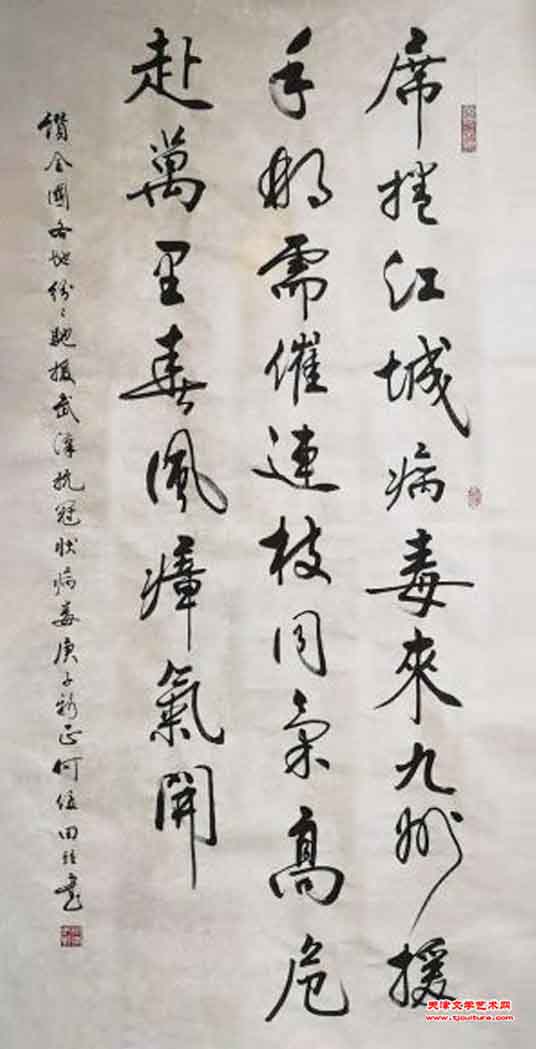 席捲江城病毒來九州援
手那需催連枝同氣高危
赴萬里春風瘴氣開
讚全國各地紛々馳援武漢抗冠狀病毒庚子新正何俊田書
天津文学艺术网
www.tjculture.com